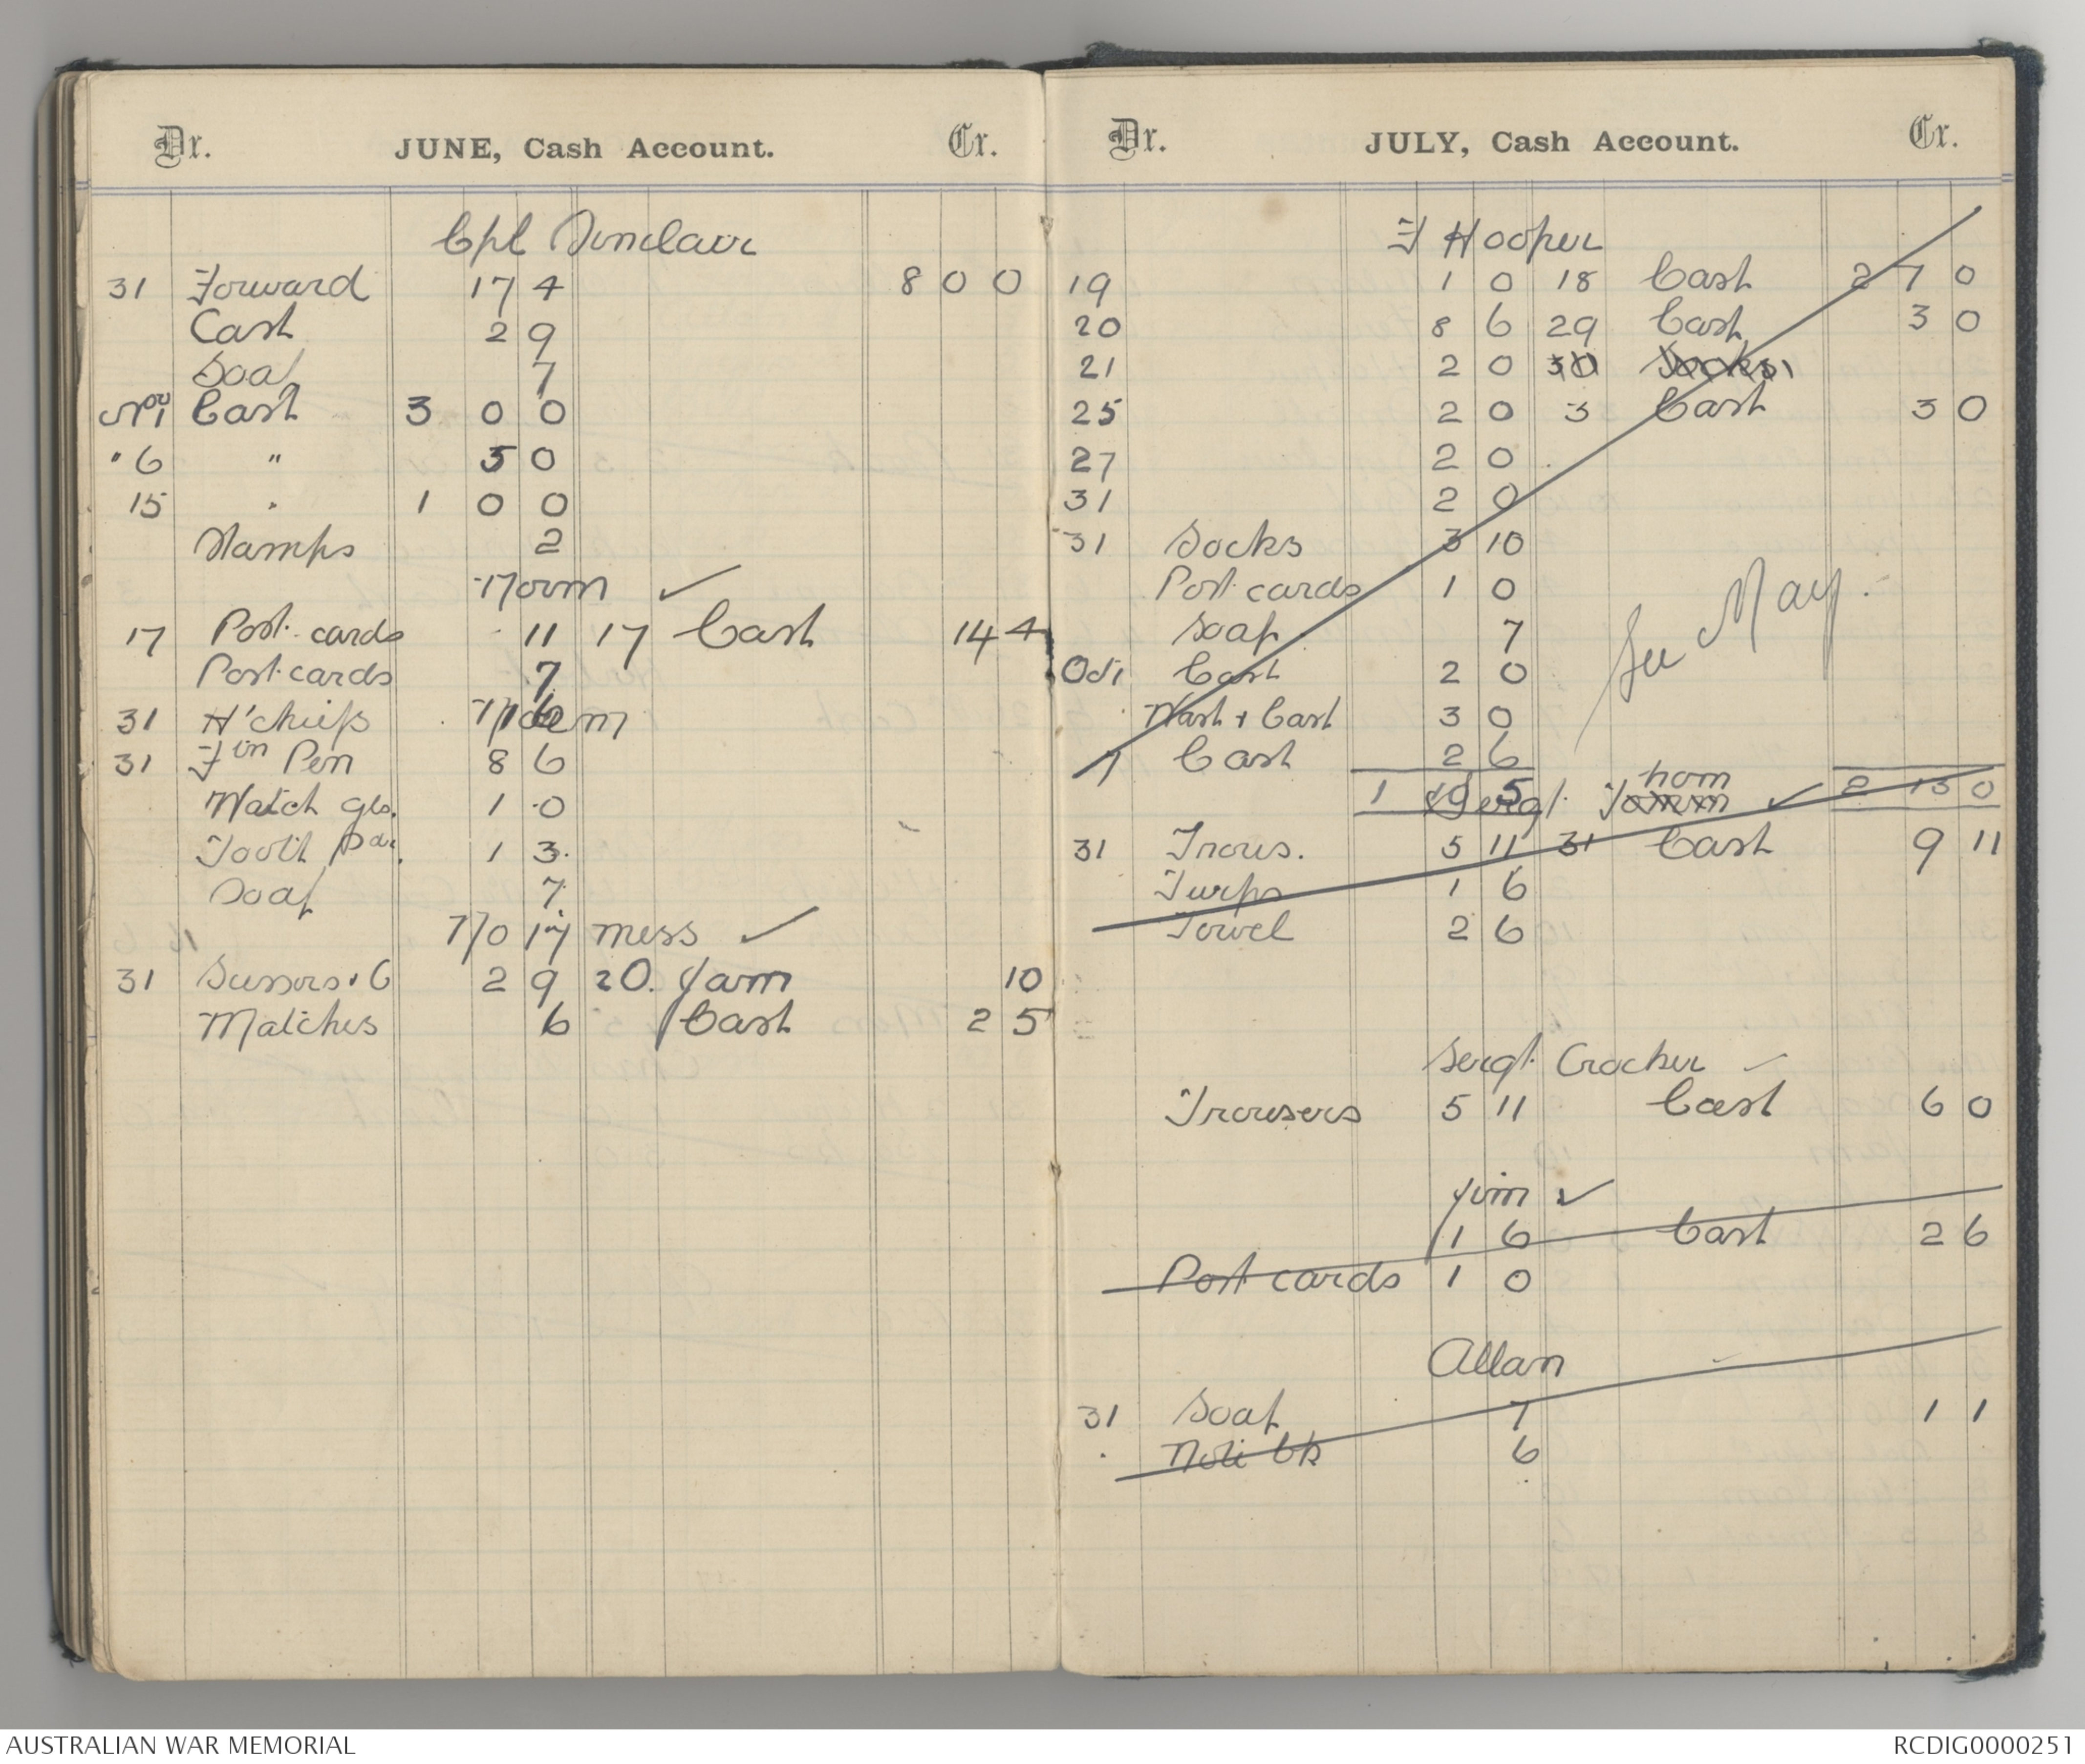 Dr. JUNE, Cash Account. Cr.
Cpl Sinclair
31 Forward 17 4 8 0 0
Cash 2 9
Soap 7
Nov 1 Cash 3 0 0
" 6 " 5 0
15 " 1 0 0
Stamps 2
✓
17 Post-cards 11 17 Cash 14 4
Post-cards 7
31 H'chiefs
31 Ftn Pen 8 6
Watch gls. 1 0
Tooth 1 3
Soap 7
mess ✓
31 2 9 20. Yarn 10
Matches 6 Cash 2 5
Dr. JULY, Cash Account. Cr.
F Hooper
19 1 0 18 Cash 2 7 0
20 8 6 29 Cash 3 0
21 2 0 30 Socks
25 2 0 3 Cash 3 0
27 2 0
31 2 0
31 Socks 3 10
Post-cards 1 0
Soap 7
See May.
Oct 1 Cash 2 0
Wash + Cash 3 0
7 Cash 2 6
1 10 5 2 13 0
Sergt. Thom ✓
31 Trous. 5 11 31 Cash 9 11
Turps 1 6
Towel 2 6
Sergt. Crocker
Trousers 5 11 Cash 6 0
Jim ✓
1 6 Cash 2 6
Post cards 1 0
Allan
31 Soap 7 1 1
Note bk 6
AUSTRALIAN WAR MEMORIAL RCDIG0000251